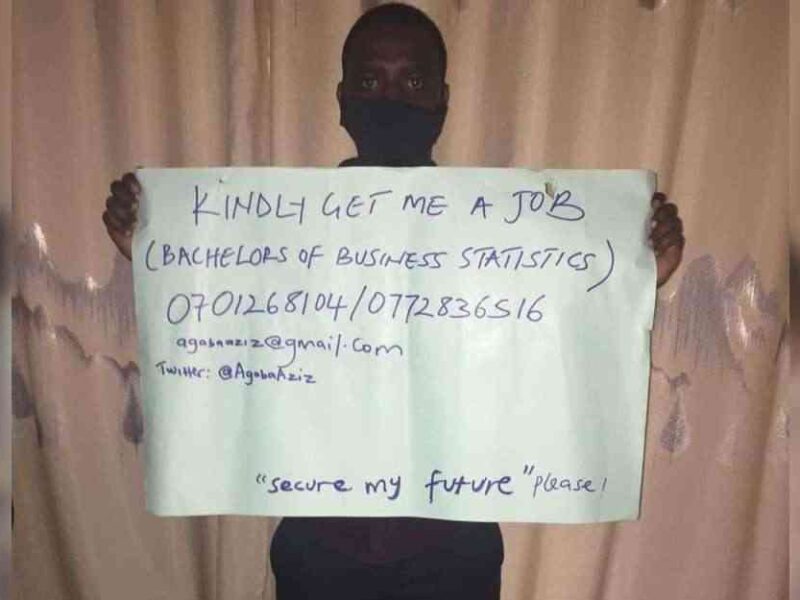 KINDLY GET ME A JOB
(BACHELORS OF BUSINESS STATISTICS)
0701268104/0772836516
agabaaziz@gmail.com
Twitter: @AgabaAziz
"secure my future" please!